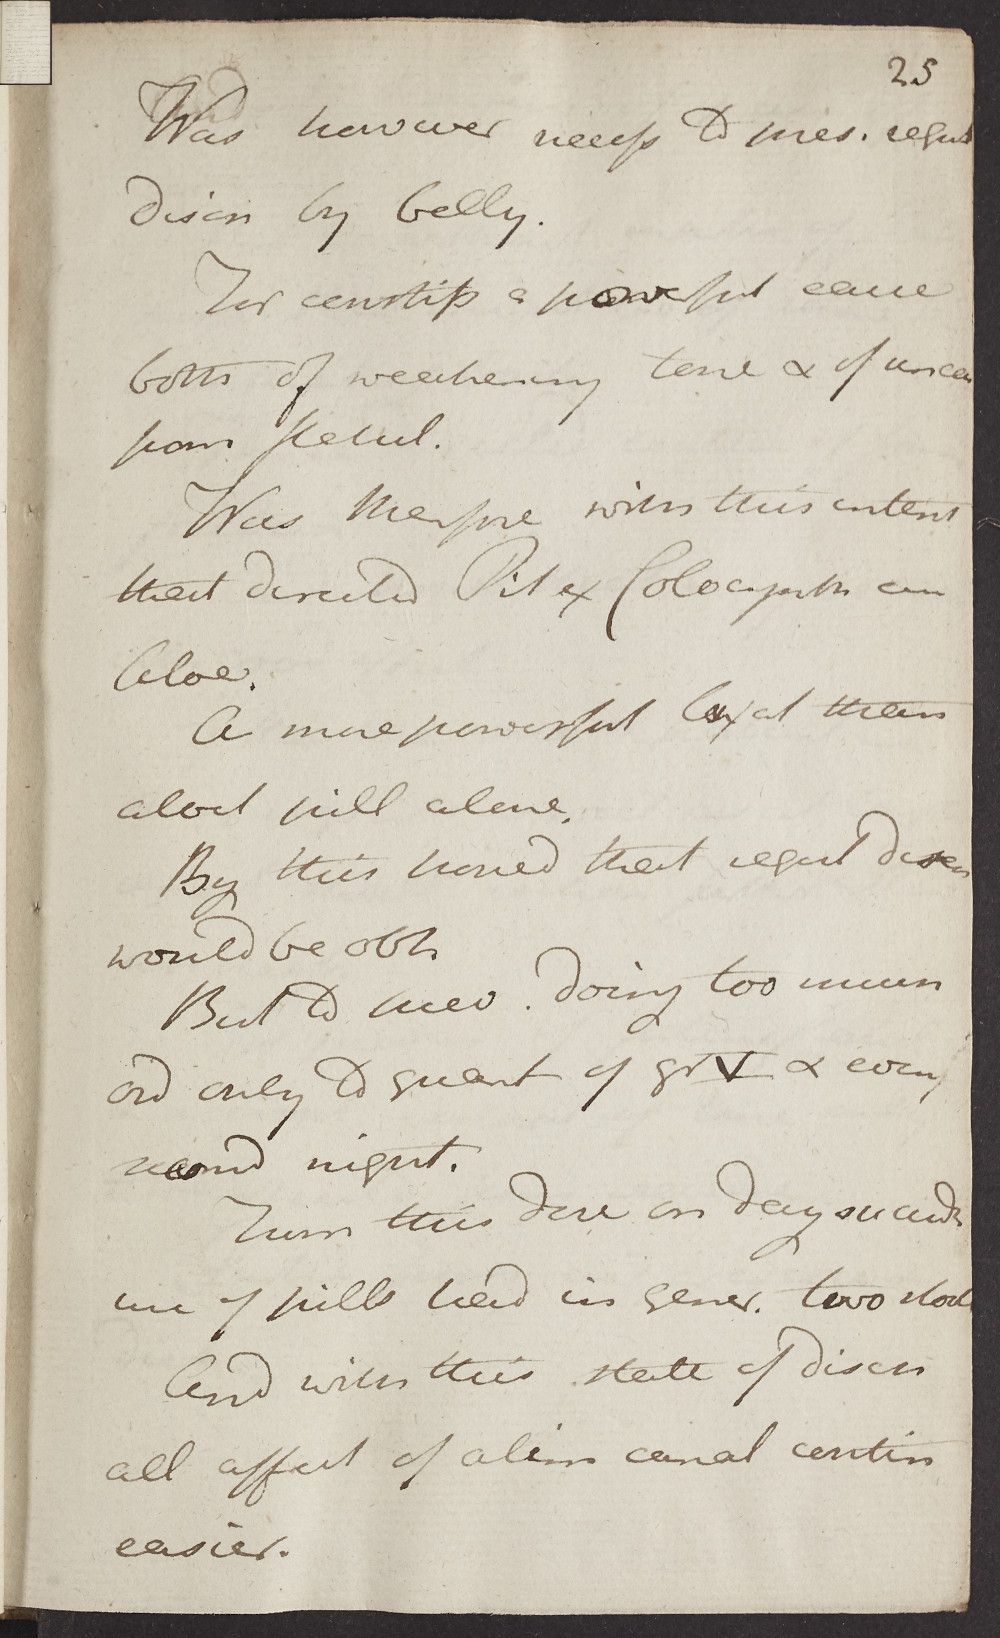 25
Was however necess to pres. regul
disch by belly.
For constip a powerful cause
both of weakening tone & of uncea
from flatul.
Was therfore with this intent
that directed Pil ex Colocynth cum
Aloe.
A more powerful laxat than
aloet pill alone.
By this hoped that regul disch
would be obt.
But to avoid doing too much
ord only to quant of gr V & every
second night.
From this dose on day succeed
use of pills had in gener. two stools
And with this state of disch
all affect of alim canal contin
easier.